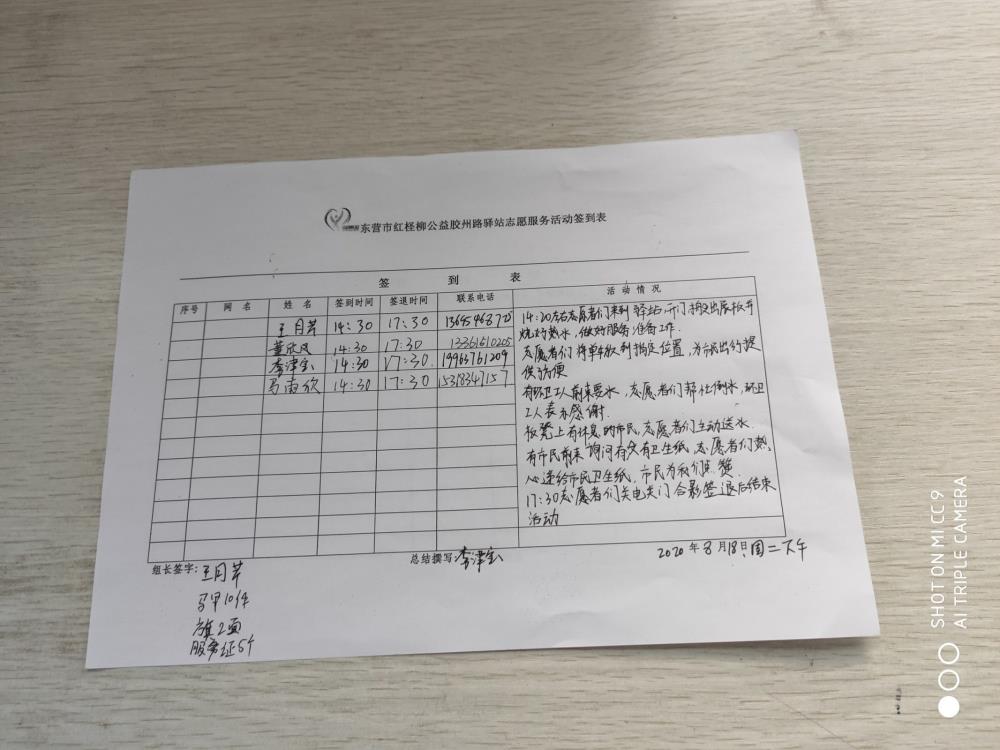 东营市红柽柳公益胶州路驿站志愿服务活动签到表
签 到 表
序号 网 名 姓 名 签到时间 签退时间 联系电话 活 动 情 况
王月芹 14:30 17:30
董欣凤 14:30 17:30 13361610205
李津宝 14:30 17:30 19963761209
马南欣 14:30 17:30 15318347157
14:20左右志愿者们来到驿站,开门搬出展板并
烧好热水,做好服务准备工作.
志愿者们将单车挪到指定位置,为市民出行提
供方便
有环卫工人前来要水,志愿者们帮忙倒水,环卫
工人表示感谢.
板凳上有休息的市民,志愿者们主动送水.
有市民前来询问有没有卫生纸,志愿者们热
心递给市民卫生纸,市民为我们点赞
17:30志愿者们关电关门合影签退后结束
活动
组长签字:王月芹
总结撰写:李津宝
2020年8月18日,周二下午
马甲10件
旗2面
服务证5个
SHOT ON MI CC9
AI TRIPLE CAMERA